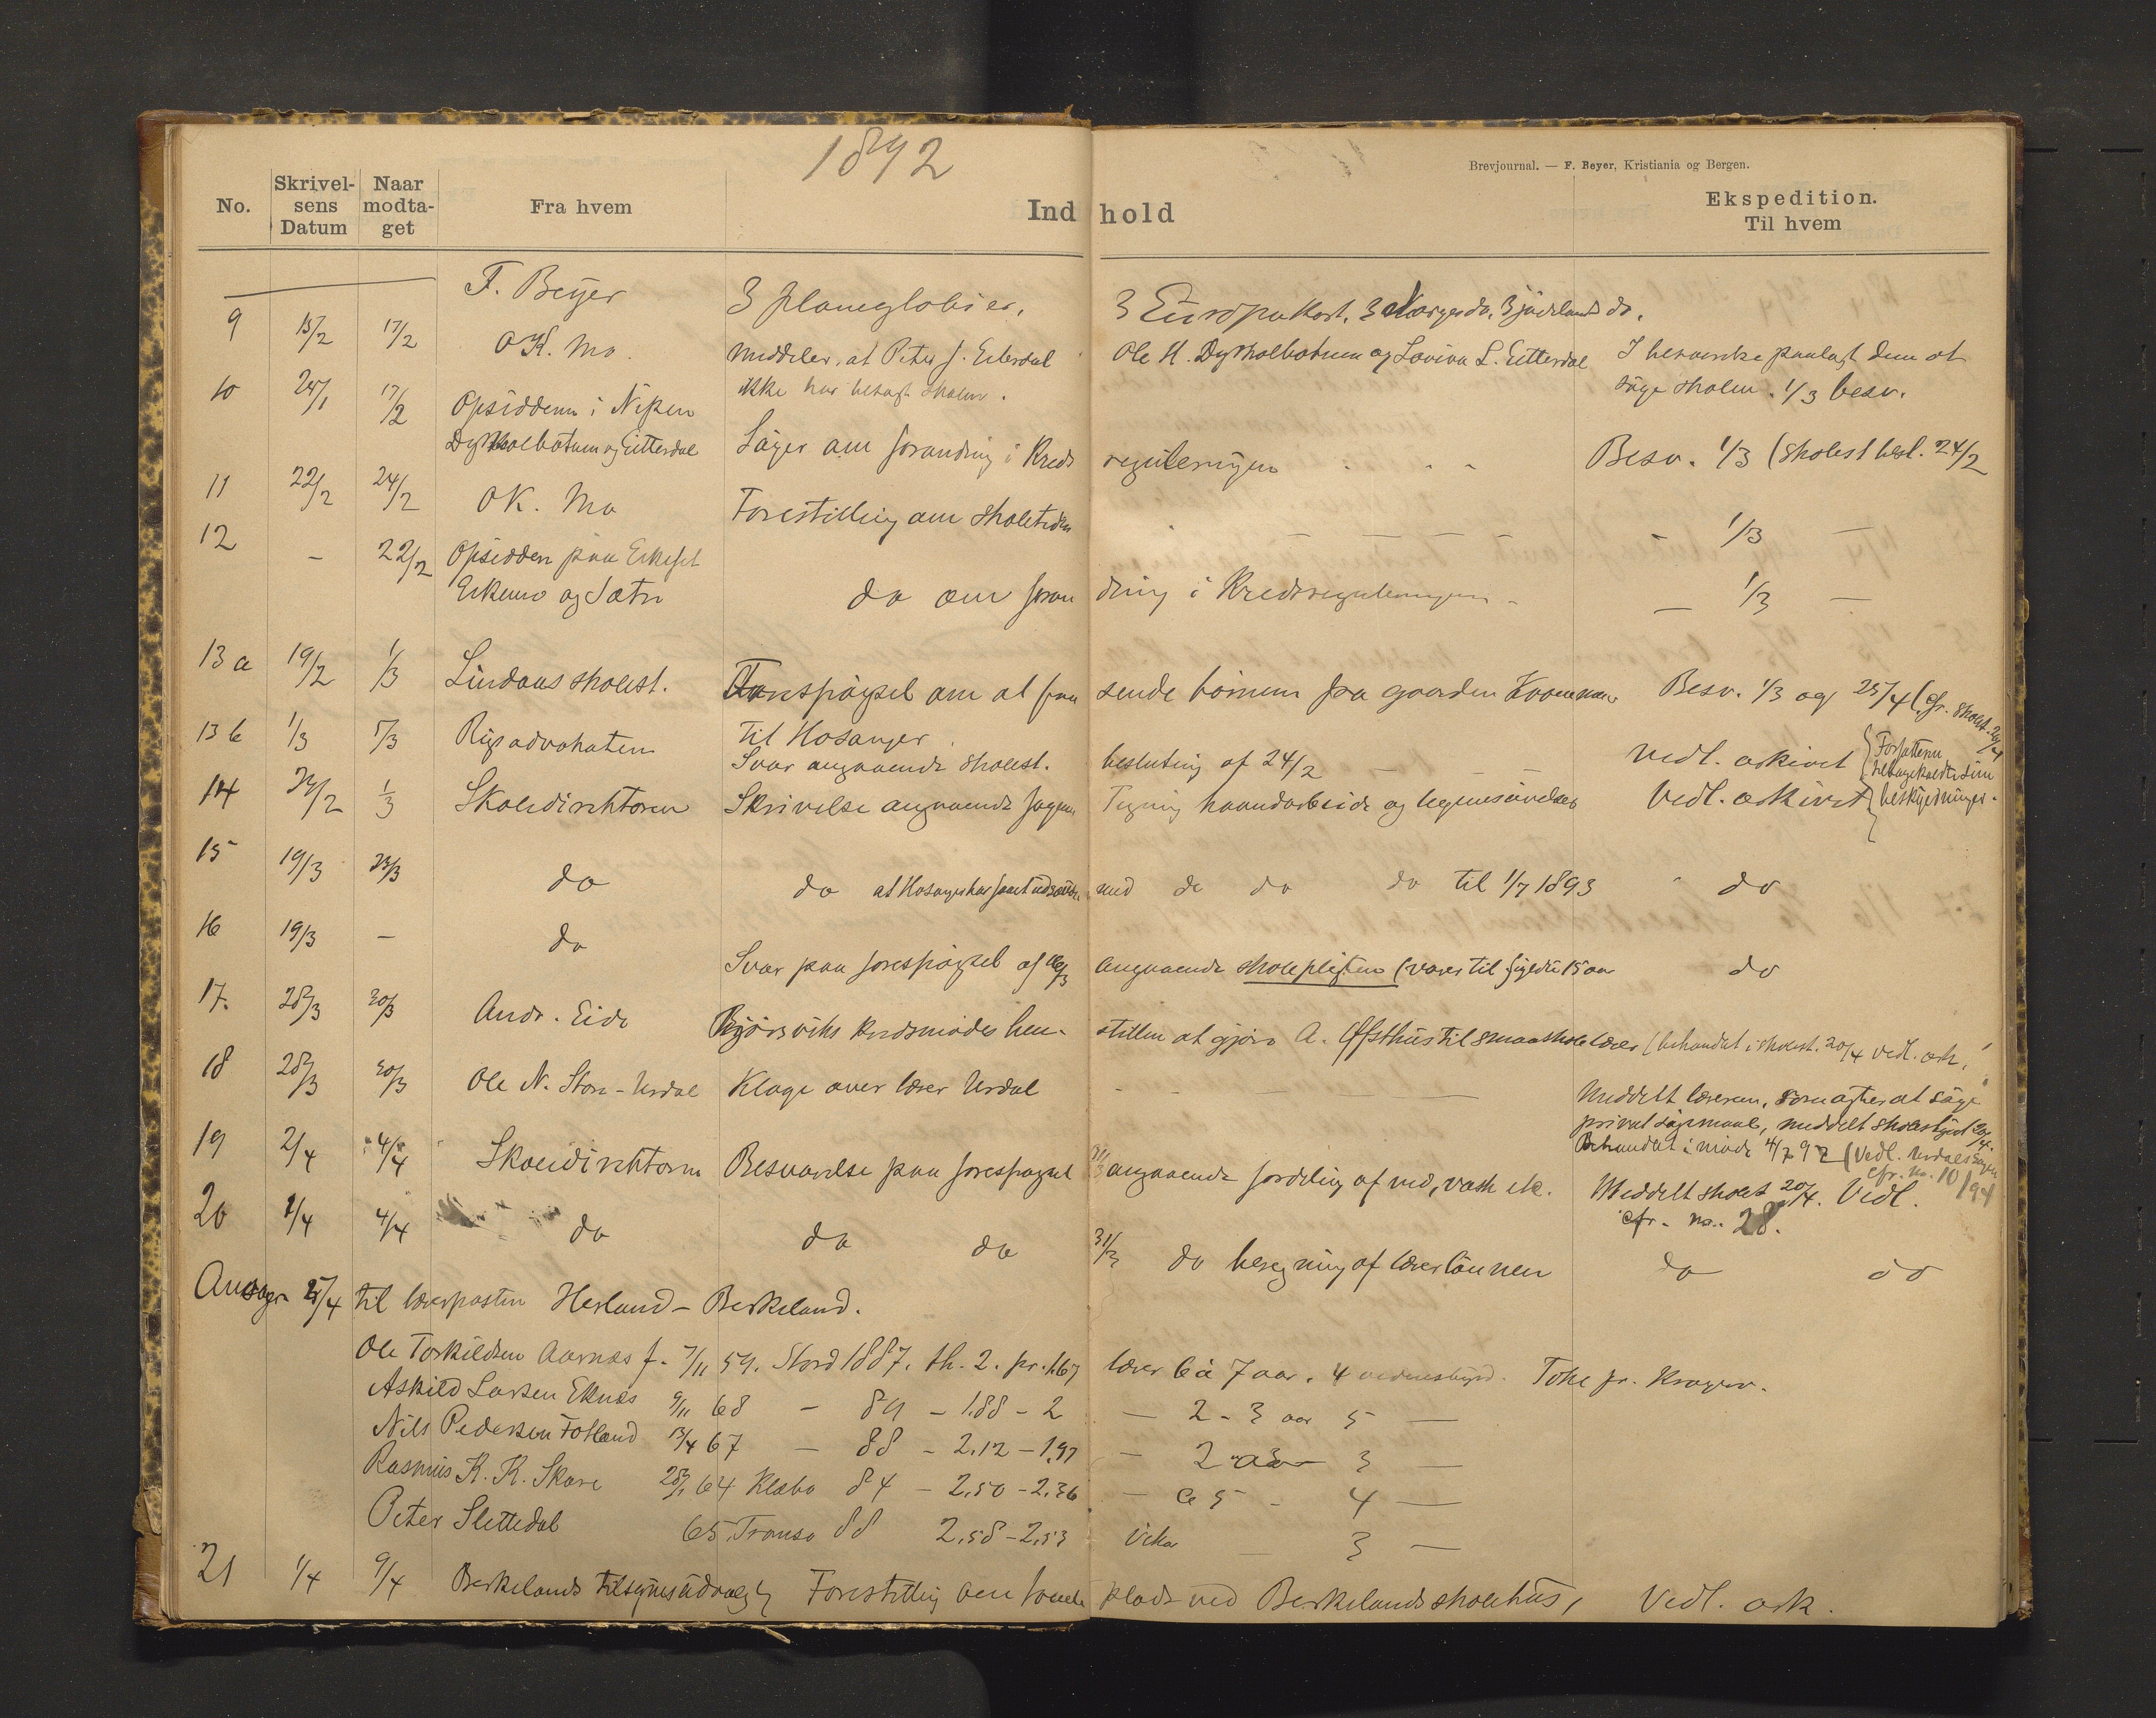 1892
Brevjournal. — F. Beyer, Kristiania og Bergen.
No. Skrivelsens Datum Naar modtaget Fra hvem Indhold Ekspedition. Til hvem
F. Beyer 3 planeglobier, 3 Europakart, 3 Norges do, 3 jødeland do.
9 15/2 17/2 O K. Mo. Meddeler, at Peter J. Eiterdal Ole H. Dyskolbotnen og Lovina L. Eitterdal I henv paalagt dem at
ikke har besøgt skolen. søge skolen. 1/3 besv.
10 24/1 17/2 Opsidderne i Nipen
Dyskolbotnen og Eitterdal Søger om forandring i Kreds reguleringen - - - Besv. 1/3 (skolest besl. 24/2
11 22/2 24/2 O K. Mo Forestilling om skoletiden - - - - - 1/3 —
12 - 22/2 Opsidden paa Eikeset
Eikemo og Sætre do om foran dring i Kredsreguleringen - — 1/3 —
13 a 19/2 1/3 Lindaas skolest. Forespørgsel om at faa sende børnene fra gaarden Besv. 1/3 og 25/4 (cfr. skolest. 20/4
til Hosanger.
13 b 1/3 5/3 Rigsadvokaten Svar angaaende skolest. beslutning af 24/2 — — — Vedl. arkivet { Forfatteren
tilbagekaldte sine
beskyldninger.
14 23/2 1/3 Skoledirektøren Skrivelse angaaende fagene Tegning haandarbeide og legemsøvelser Vedl. arkivet
15 19/3 23/3 do do at Hosanger har faaet udsættelse med do do do til 1/7 1893 - do
16 19/3 - do Svar paa forespørgsel af 16/3 angaaende skolepligten (varer til fyldte 15 aar do
17. 28/3 30/3 Andr. Eide Bjørsviks kredsmøde hen- stiller at gjøre A. Øfsthus til smaaskolelærer (behandlet i skolest. 20/4 vedl. ark.
18 28/3 30/3 Ole N. Store-Urdal Klage over lærer Urdal - — — — Meddelt læreren, som agter at søge
privat søgsmaal, meddelt skolestyret 20/4.
Behandlet i møde 4/7 92 (Vedl. Urdals sagen
cfr. no. 10/94
19 2/4 4/4 Skoledirektøren Besvarelse paa forespørgsel 31/3 angaaende fordeling af ved, vask etc. Meddelt skolest 20/4. Vedl.
cfr. no. 28.
20 1/4 4/4 do do do 31/3 do beregning af lærerlønnen do do
Ansøgr 25/4 til lærerposten Herland - Berkeland.
Ole Torkildsen Aarnæs f. 7/11 59. Stord 1887. th. 2. pr. 1.67 lærer 6 à 7 aar. 4 vidnesbyrd. Toke pr. Kragerø.
Askild Larsen Eknæs 9/11 68 - 89 - 1.88 - 2 — 2 - 3 aar 5 —
Nils Pedersen Fotland 13/4 67 - 88 - 2.12 - 1.97 — 2 aar 3 —
Rasmus K. K. Skare 28/1 64 Klæbo 84 - 2.50 - 2.36 — 5 - 4 —
Peter Slettedal 65 Tromsø 88 2.58 - 2.53 vikar — 3 —
21 1/4 9/4 Berkelands tilsynsudvalg Forestilling om tomte plads ved Berkelands skolehus, Vedl. ark.